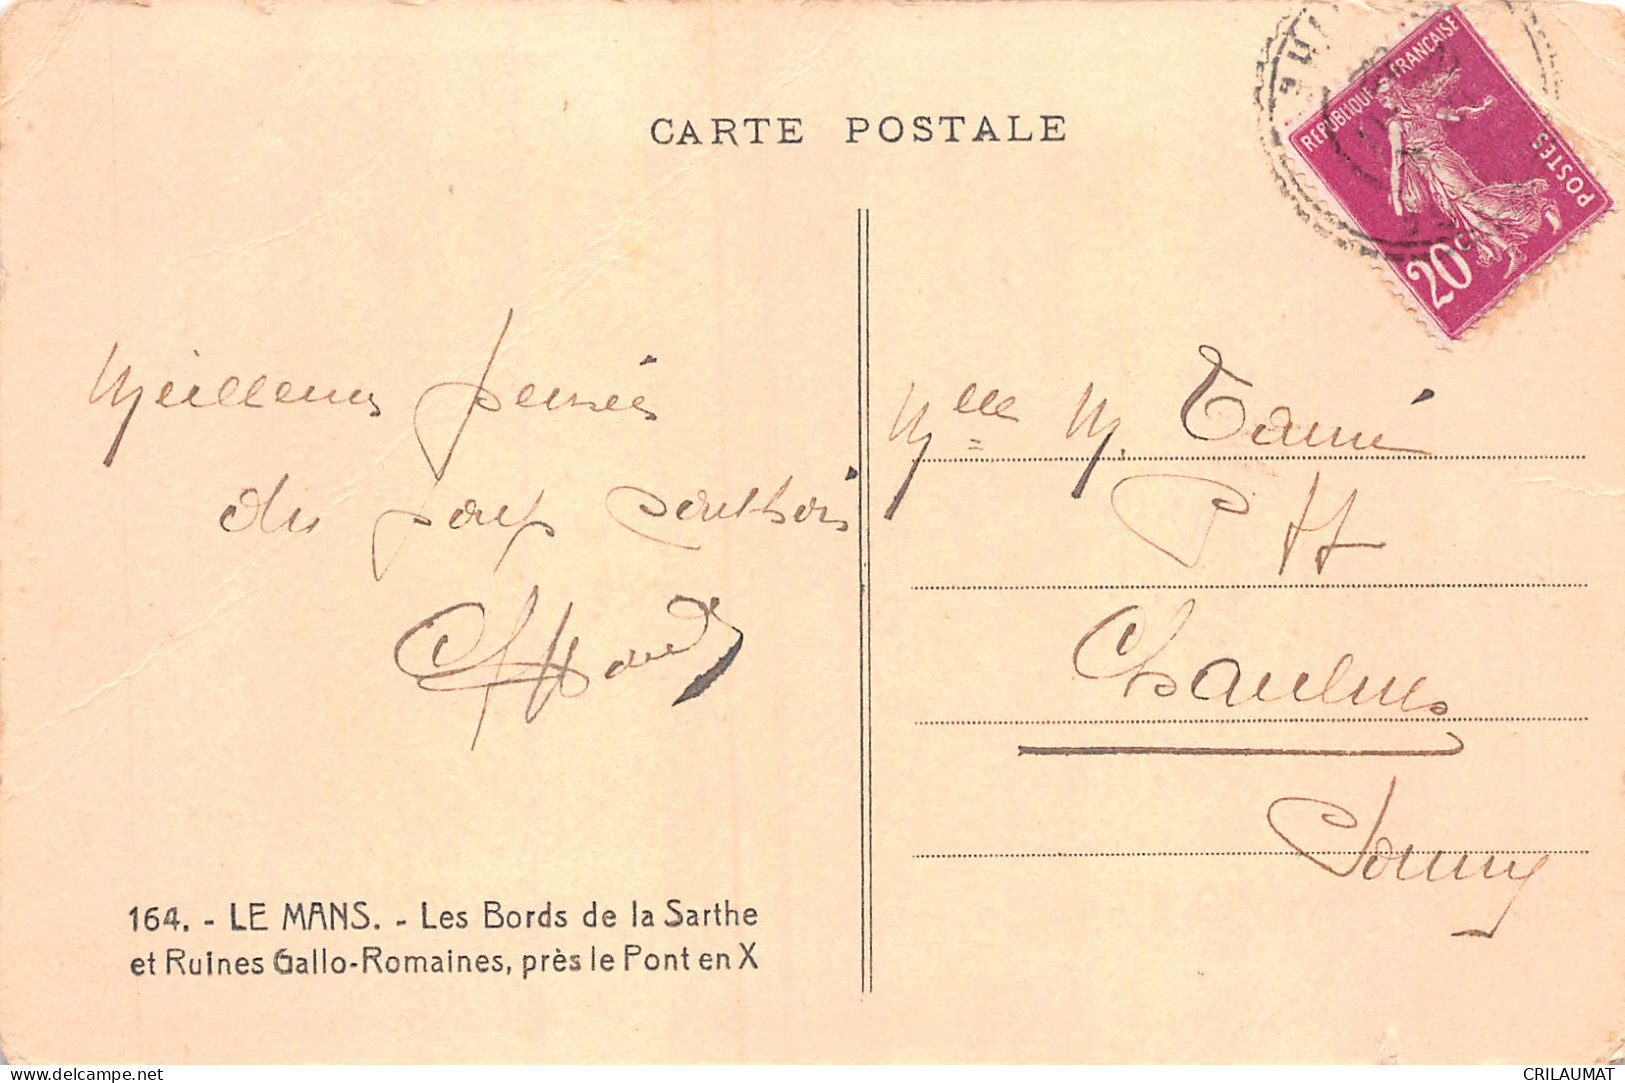 CARTE POSTALE
REPUBLIQUE FRANÇAISE
POSTES
20c
Meilleures pensées
du pays
Mlle M.
P H
Chaulnes
Somme
164. - LE MANS. - Les Bords de la Sarthe
et Ruines Gallo-Romaines, près le Pont en X
delcampe.net
CRILAUMAT